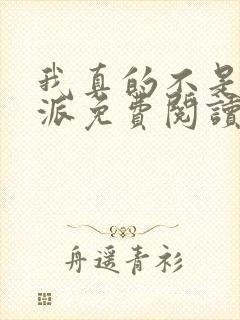 我真的不是
派免費閱讀
舟遥青衫